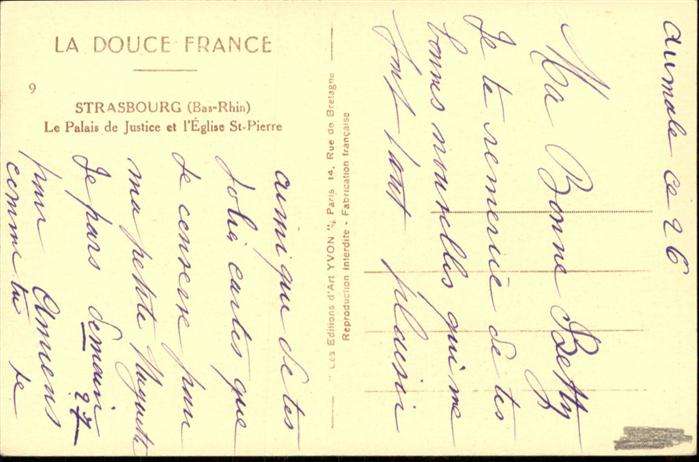 LA DOUCE FRANCE
9
STRASBOURG (Bas-Rhin)
Le Palais de Justice et l'Église St-Pierre
"Les Editions d'Art YVON", Paris 14, Rue de Bretagne
Reproduction Interdite - Fabrication française
Aumale ce 26
Ma Bonne Betty
Je te remercie de tes
bonnes nouvelles qui me
font tant plaisir
ainsi que de tes
jolies cartes que
je conserve pour
ma petite Huguette
Je pars demain 27
pour Amiens
comme tu te